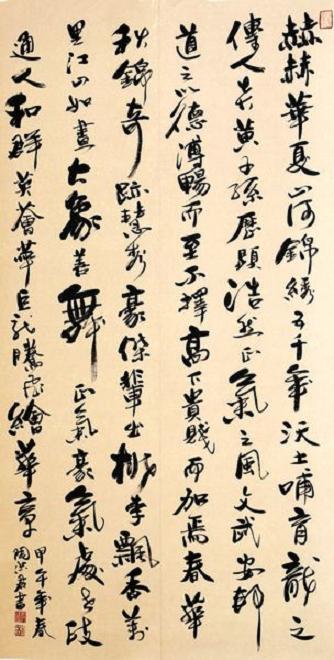 赫赫華夏山河錦綉五千年沃土哺育龍之
傳人炎黃子孫歷顯浩然正氣之風文武安邦
道之以德溥暢而至不擇高下貴賤而加焉春華
秋錦奇跡慧秀豪傑輩出桃李飄香萬
里江山如畫大象善舞正氣豪氣處世政
通人和群英薈華巨龍騰飛繪華章
甲午年春
書